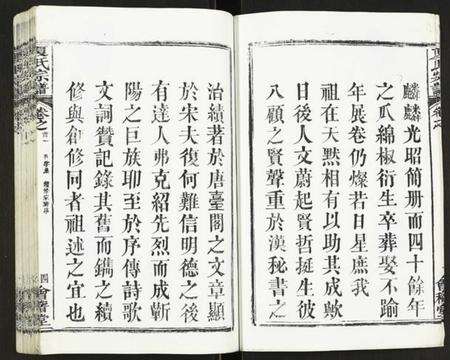 麟麟光昭簡册而四十餘年
之瓜綿椒衍生卒葬娶不踰
年展卷仍燦若日星庶我
祖在天黙相有以助其成歟
日後人文蔚起賢哲挺生彼
八顧之賢聲重於漢秘書之
治績著於唐臺閣之文章顯
於宋夫復何難信明德之後
有達人弗克紹先烈而成蘄
陽之巨族耶至於序傳詩歌
文詞贊記錄其舊而鐫之續
修與創修同者祖述之宜也
夏氏宗譜
卷之首
四
會稽堂